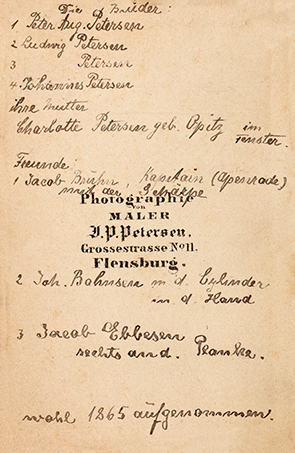 Die Brüder:
1 Peter Aug. Petersen
2 Ludwig Petersen
3 Petersen
4. Johannes Petersen
ihre Mutter
Charlotte Petersen geb. Opitz im
Fenster.
Freunde:
1 Jacob Bruhn, Kapitain (Apenrade)
mit der Schärpe
Photographie
von
MALER
J. P. Petersen.
Grossestrasse No 11.
Flensburg.
2 Joh. Bahnsen m. d. Cylinder
in d. Hand
3 Jacob Ebbesen
rechts an d. Planke.
wohl 1865 aufgenommen.